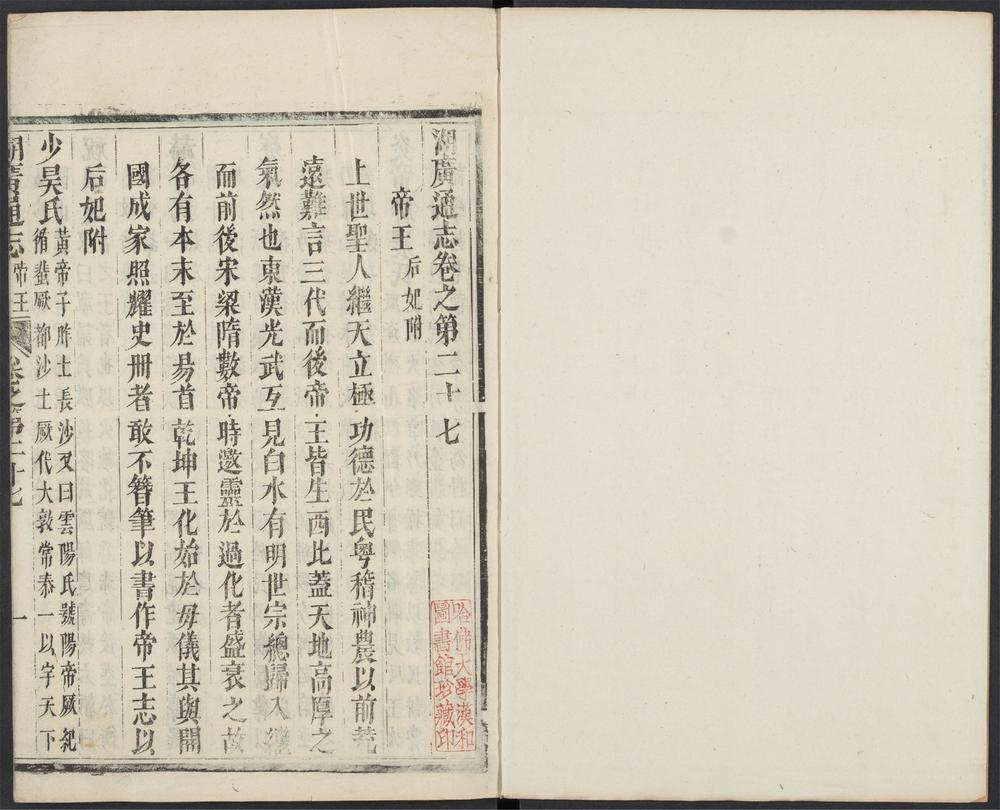 湖廣通志卷之第二十七
帝王后妃附
上世聖人繼天立極功德於民粤稽神農以前荒
遠難言三代而後帝王皆生西北蓋天地高厚之
氣然也東漢光武互見白水有明世宗總歸入繼
而前後宋梁隋數帝時邀靈於過化者盛衰之故
各有本末至於易首乾坤王化始於毋儀其與開
國成家照耀史冊者敢不簪筆以書作帝王志以
后妃附
少昊氏黃帝子胙土長沙又曰雲陽氏號陽帝厥紀
循蜚厥都沙土厥代大敦常恭一以字天下
湖廣通志 帝王 卷之第二十七 一
哈佛大學漢和
圖書館珍藏印